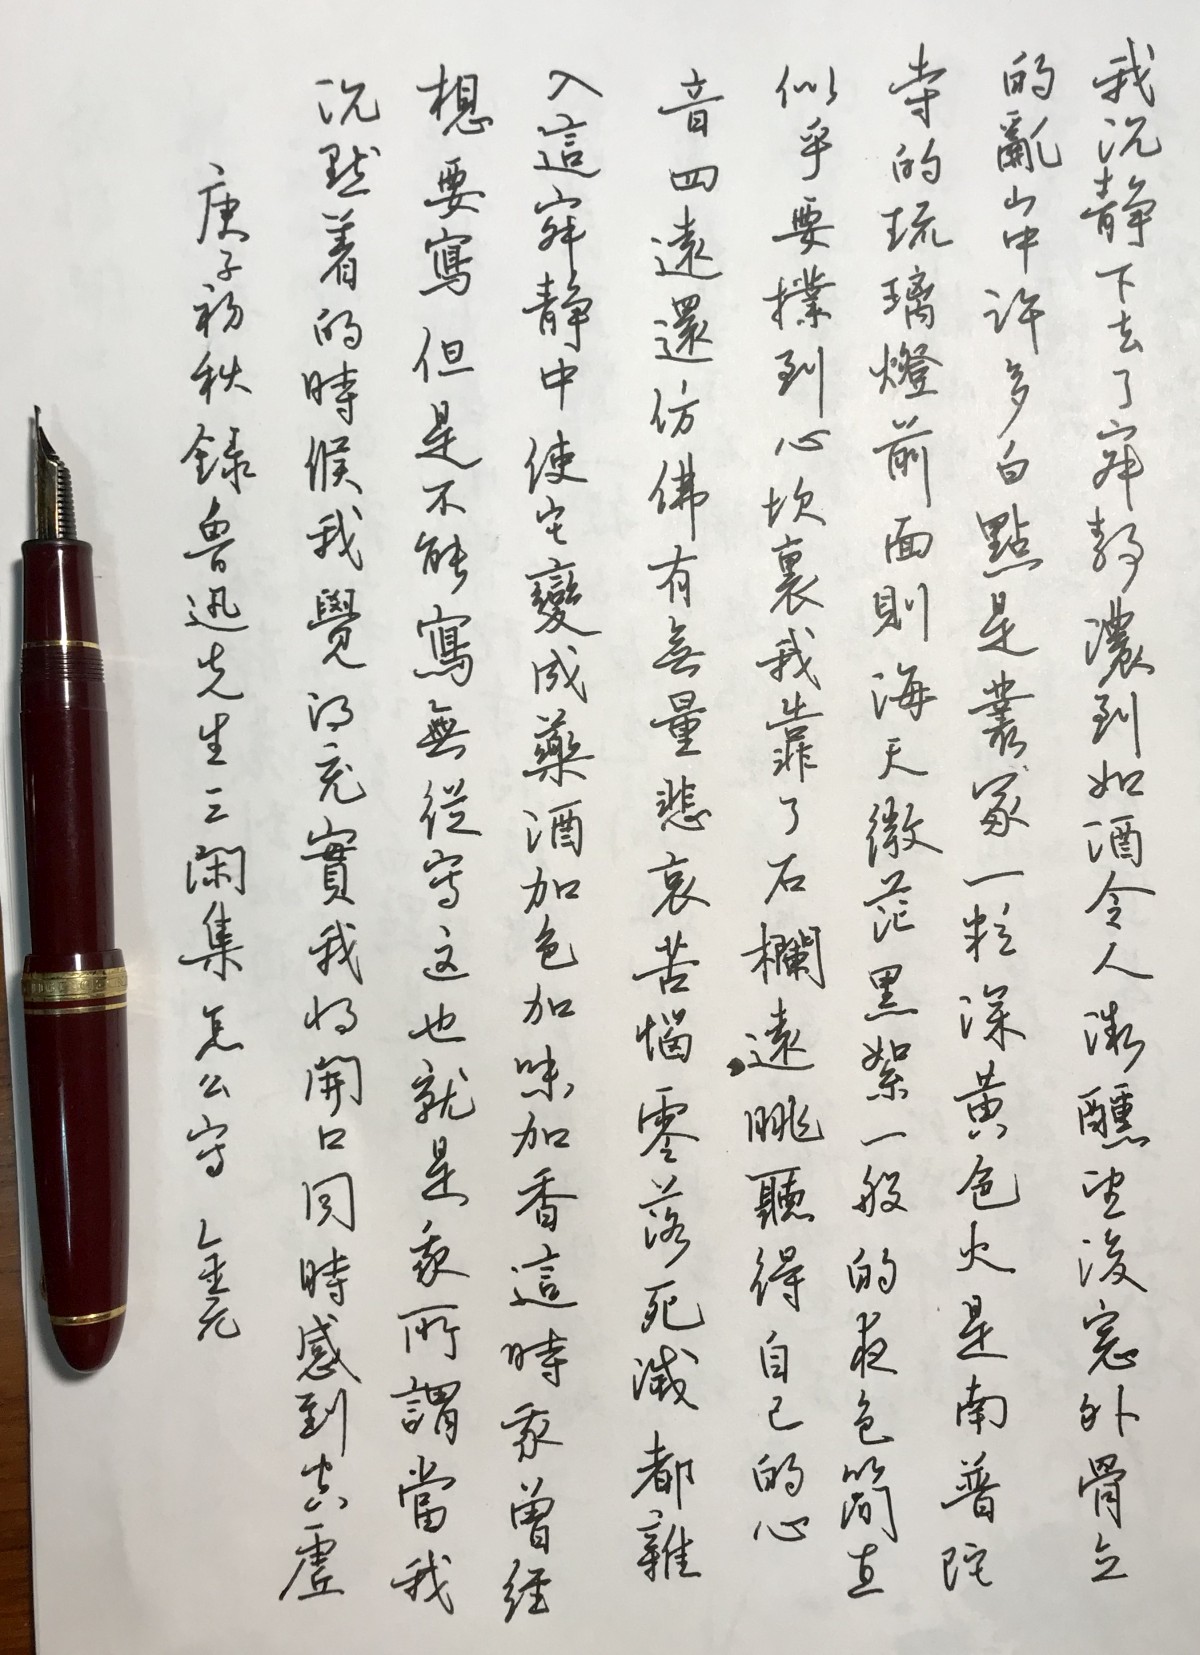 我沉静下去了寂静濃到如酒令人微醺望後窓外骨立
的亂山中許多白點是叢冢一粒深黃色火是南普陀
寺的琉璃燈前面則海天微茫黑絮一般的夜色簡直
似乎要撲到心坎裏我靠了石欄遠眺聽得自己的心
音四遠還仿佛有無量悲哀苦惱零落死滅都雜
入這寂静中使它變成藥酒加色加味加香這時我曾經
想要寫但是不能寫無從寫这也就是我所謂當我
沉默着的時候我覺得充實我将開口同時感到空虛
庚子初秋錄魯迅先生三闲集怎么寫 金元